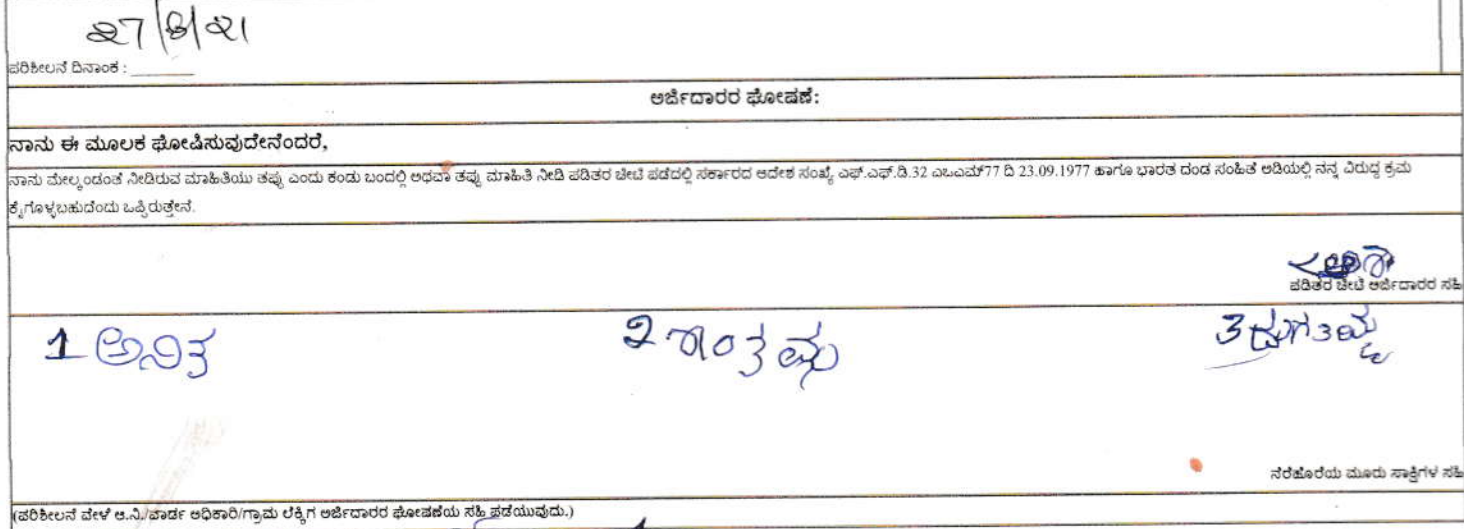 27/8/21
ಪರಿಶೀಲನೆ ದಿನಾಂಕ :
ಅರ್ಜಿದಾರರ ಘೋಷಣೆ:
ನಾನು ಈ ಮೂಲಕ ಘೋಷಿಸುವುದೇನೆಂದರೆ,
ನಾನು ಮೇಲ್ಕಂಡಂತೆ ನೀಡಿರುವ ಮಾಹಿತಿಯು ತಪ್ಪು ಎಂದು ಕಂಡು ಬಂದಲ್ಲಿ ಅಥವಾ ತಪ್ಪು ಮಾಹಿತಿ ನೀಡಿ ಪಡಿತರ ಚೀಟಿ ಪಡೆದಲ್ಲಿ ಸರ್ಕಾರದ ಆದೇಶ ಸಂಖ್ಯೆ ಎಫ್.ಎಫ್.ಡಿ.32 ಎಒಎಮ್77 ದಿ 23.09.1977 ಹಾಗೂ ಭಾರತ ದಂಡ ಸಂಹಿತೆ ಅಡಿಯಲ್ಲಿ ನನ್ನ ವಿರುದ್ಧ ಕ್ರಮ
ಕೈಗೊಳ್ಳಬಹುದೆಂದು ಒಪ್ಪಿರುತ್ತೇನೆ.
ಪಡಿತರ ಚೀಟಿ ಅರ್ಜಿದಾರರ ಸಹಿ
1 ಅನಿತ 2 ಶಾಂತಮ್ಮ 3
ನೆರೆಹೊರೆಯ ಮೂರು ಸಾಕ್ಷಿಗಳ ಸಹಿ
(ಪರಿಶೀಲನೆ ವೇಳೆ ಆ.ನಿ./ವಾರ್ಡ ಅಧಿಕಾರಿ/ಗ್ರಾಮ ಲೆಕ್ಕಿಗ ಅರ್ಜಿದಾರರ ಘೋಷಣೆಯ ಸಹಿ ಪಡೆಯುವುದು.)